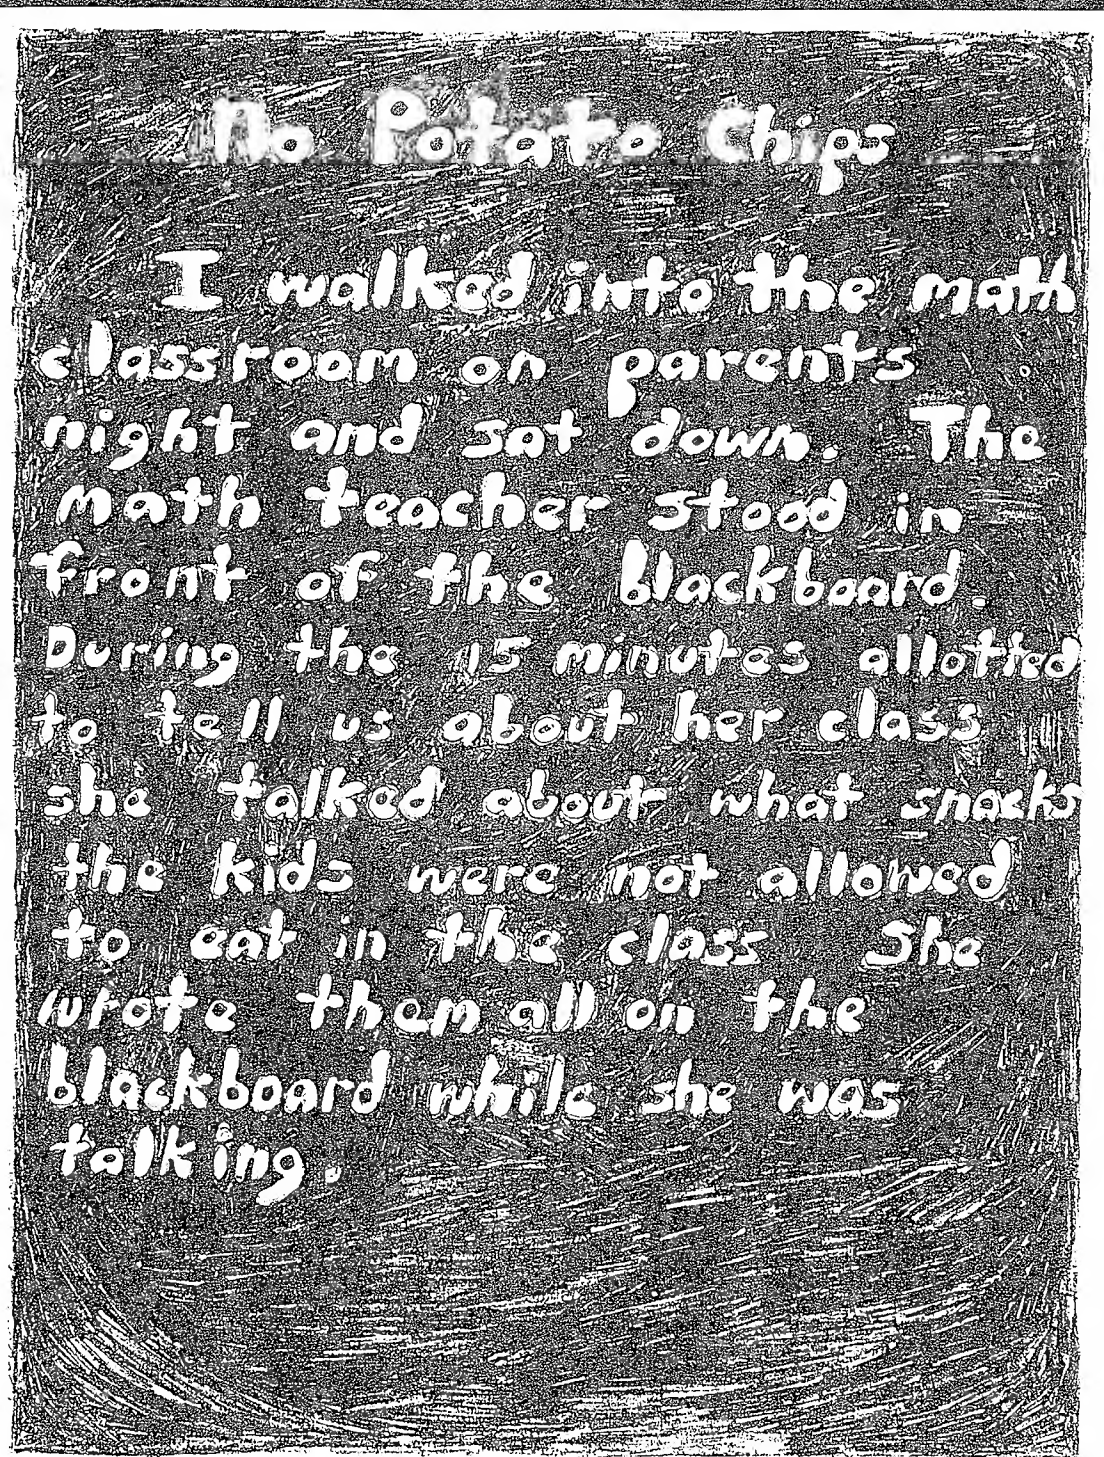 No Potato Chips
I walked into the math
classroom on parents
night and sat down. The
math teacher stood in
front of the blackboard.
During the 15 minutes allotted
to tell us about her class
she talked about what snacks
the kids were not allowed
to eat in the class She
wrote them all on the
blackboard while she was
talking.